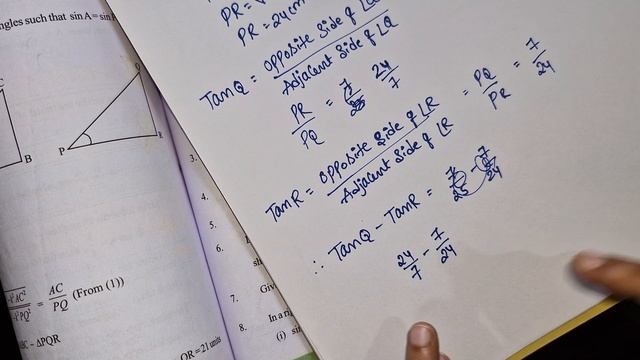 ngles such that sin A = sin
C
B
Q
P
R
AC
PQ
= AC/PQ (From (1))
~ ΔPQR
QR = 21 units
3.
4.
5.
6.
7. Giv
8. In a ri
(i) sin
PR =
PR = 24 cm
TanQ = Opposite Side of ∠Q / Adjacent Side of ∠Q
PR/PQ = 24/7
TanR = Opposite Side of ∠R / Adjacent Side of ∠R = PQ/PR = 7/24
∴ TanQ - TanR =
24/7 - 7/24